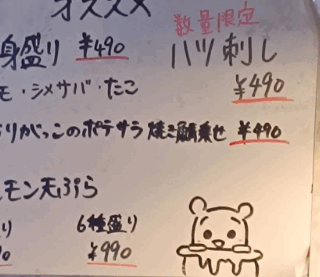 オススメ
数量限定
身盛り ¥490 ハツ刺し
モ・シメサバ・たこ ¥490
りがっこのポテサラ 焼き鯖乗せ ¥490
モン天ぷら
り 6種盛り
90 ¥990